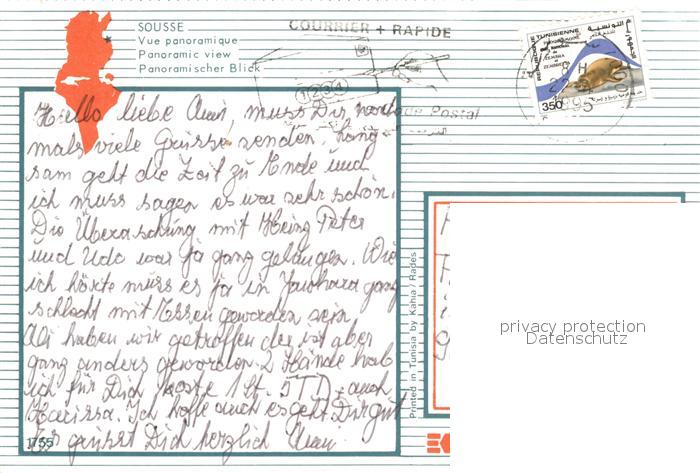 SOUSSE
Vue panoramique
Panoramic view
Panoramischer Blick
COURRIER + RAPIDE
1 2 3 4
Code Postal
REPUBLIQUE TUNISIENNE
350
95
Hello liebe Anni, muss Dir noch
mals viele Grüsse senden. Lang
sam geht die Zeit zu Ende und
ich muss sagen es war sehr schön.
Die Überaschung mit Heinz Peter
und Udo war ja ganz gelungen. Wie
ich hörte muss es ja in Jawhara ganz
schlecht mit Essen geworden sein,
Ali haben wir getroffen der ist aber
ganz anders geworden. 2 Hände hab
ich für Dich 1 St. 5 TD, auch
Harissa. Ich hoffe auch es geht Dir gut
Es grüsst Dich herzlich
1755
Printed in Tunisia by Kahia / Rades
privacy protection
Datenschutz